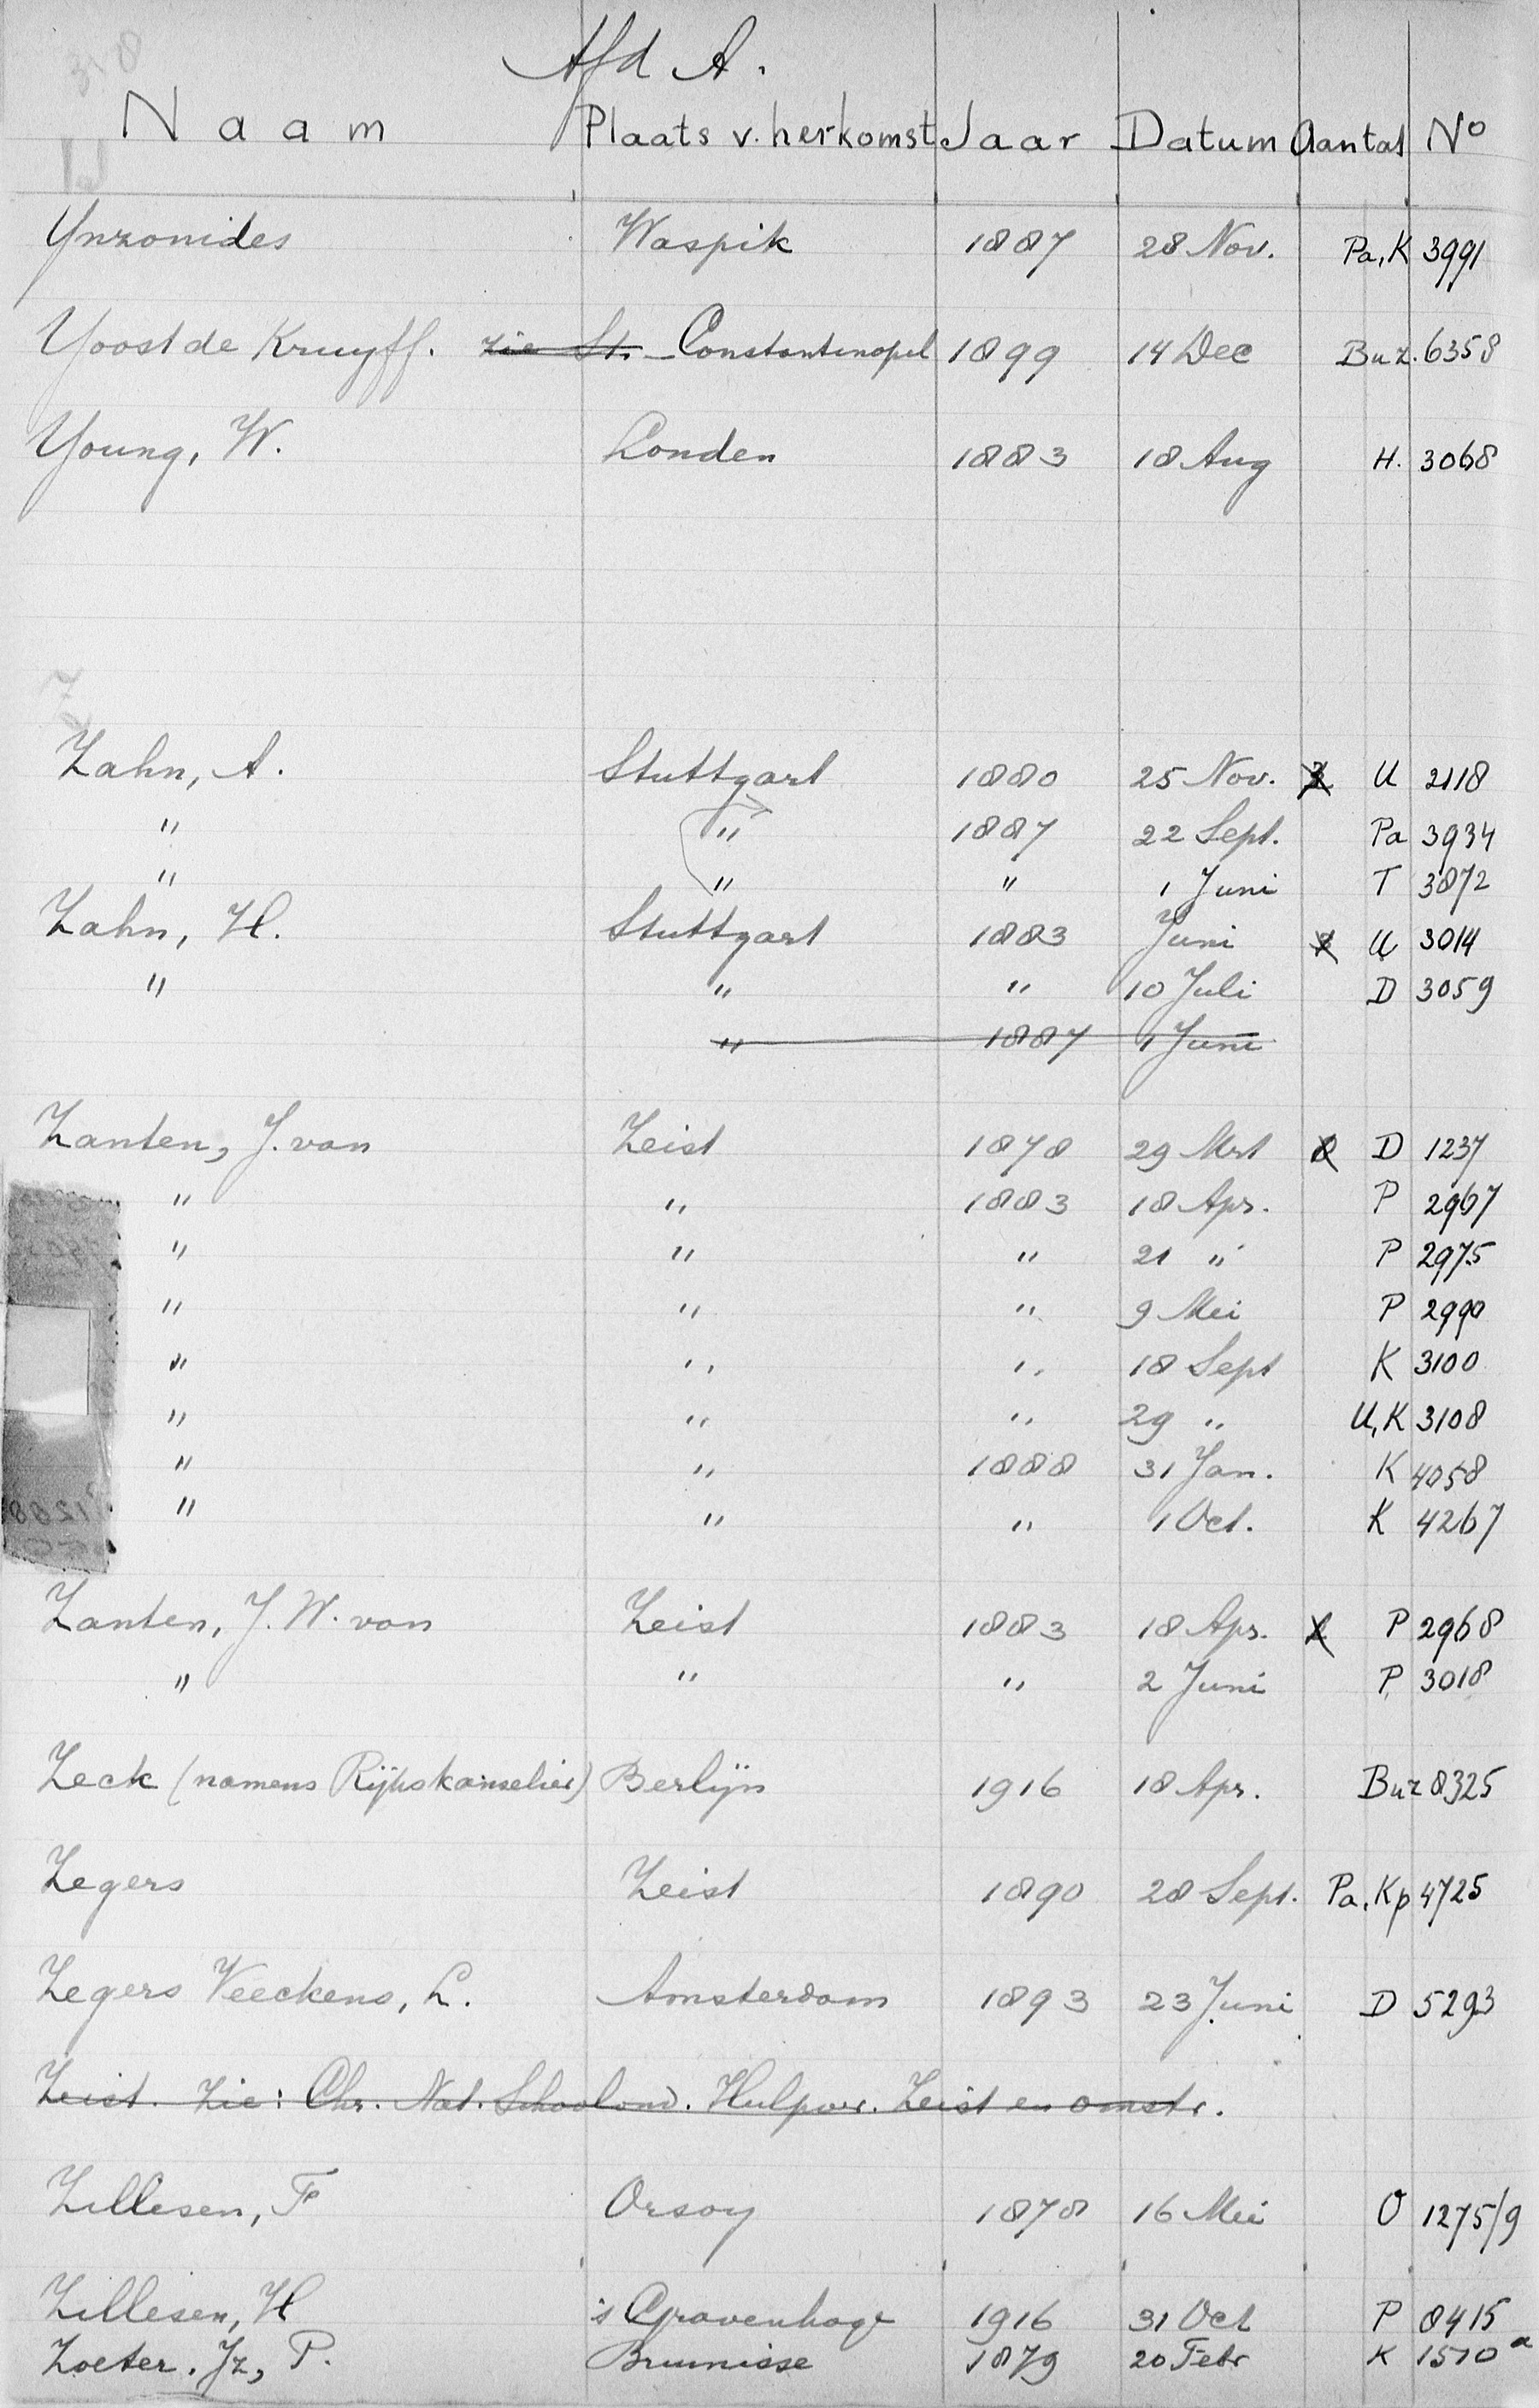 Afd A.
Naam Plaats v. herkomst Jaar Datum Aantal No
Ynzonides Waspik 1887 28 Nov. Pa, K 3991
Yoost de Kruyff. zie St. Constantinopel 1899 14 Dec Buz. 6358
Young, W. Londen 1883 18 Aug H. 3068
Z
Zahn, A. Stuttgart 1880 25 Nov. U 2118
" " 1887 22 Sept. Pa 3934
" " " 1 Juni T 3872
Zahn, H. Stuttgart 1883 Juni U 3014
" " " 10 Juli D 3059
" 1887 1 Juni
Zanten, J. van Zeist 1878 29 Mrt 8 D 1237
" " 1883 18 Apr. P 2967
" " " 21 " P 2975
" " " 9 Mei P 2990
" " " 18 Sept K 3100
" " " 29 " U, K 3108
" " 1888 31 Jan. K 4058
" " " 1 Oct. K 4267
Zanten, J. W. van Zeist 1883 18 Apr. 2 P 2968
" " " 2 Juni P. 3018
Zeck (namens Rijkskanselier) Berlijn 1916 18 Apr. Buz 8325
Zegers Zeist 1890 28 Sept. Pa, Kp 4725
Zegers Veeckens, L. Amsterdam 1893 23 Juni D 5293
Zeist. Zie: Chr. Nat. Schoolond. Hulpver. Zeist en omstr.
Zillesen, F Orsoy 1878 16 Mei O 1275/9
Zillesen, H 's Gravenhage 1916 31 Oct P 8415
Zoeter. Jz, P. Bruinisse 1879 20 Febr K 1510 a